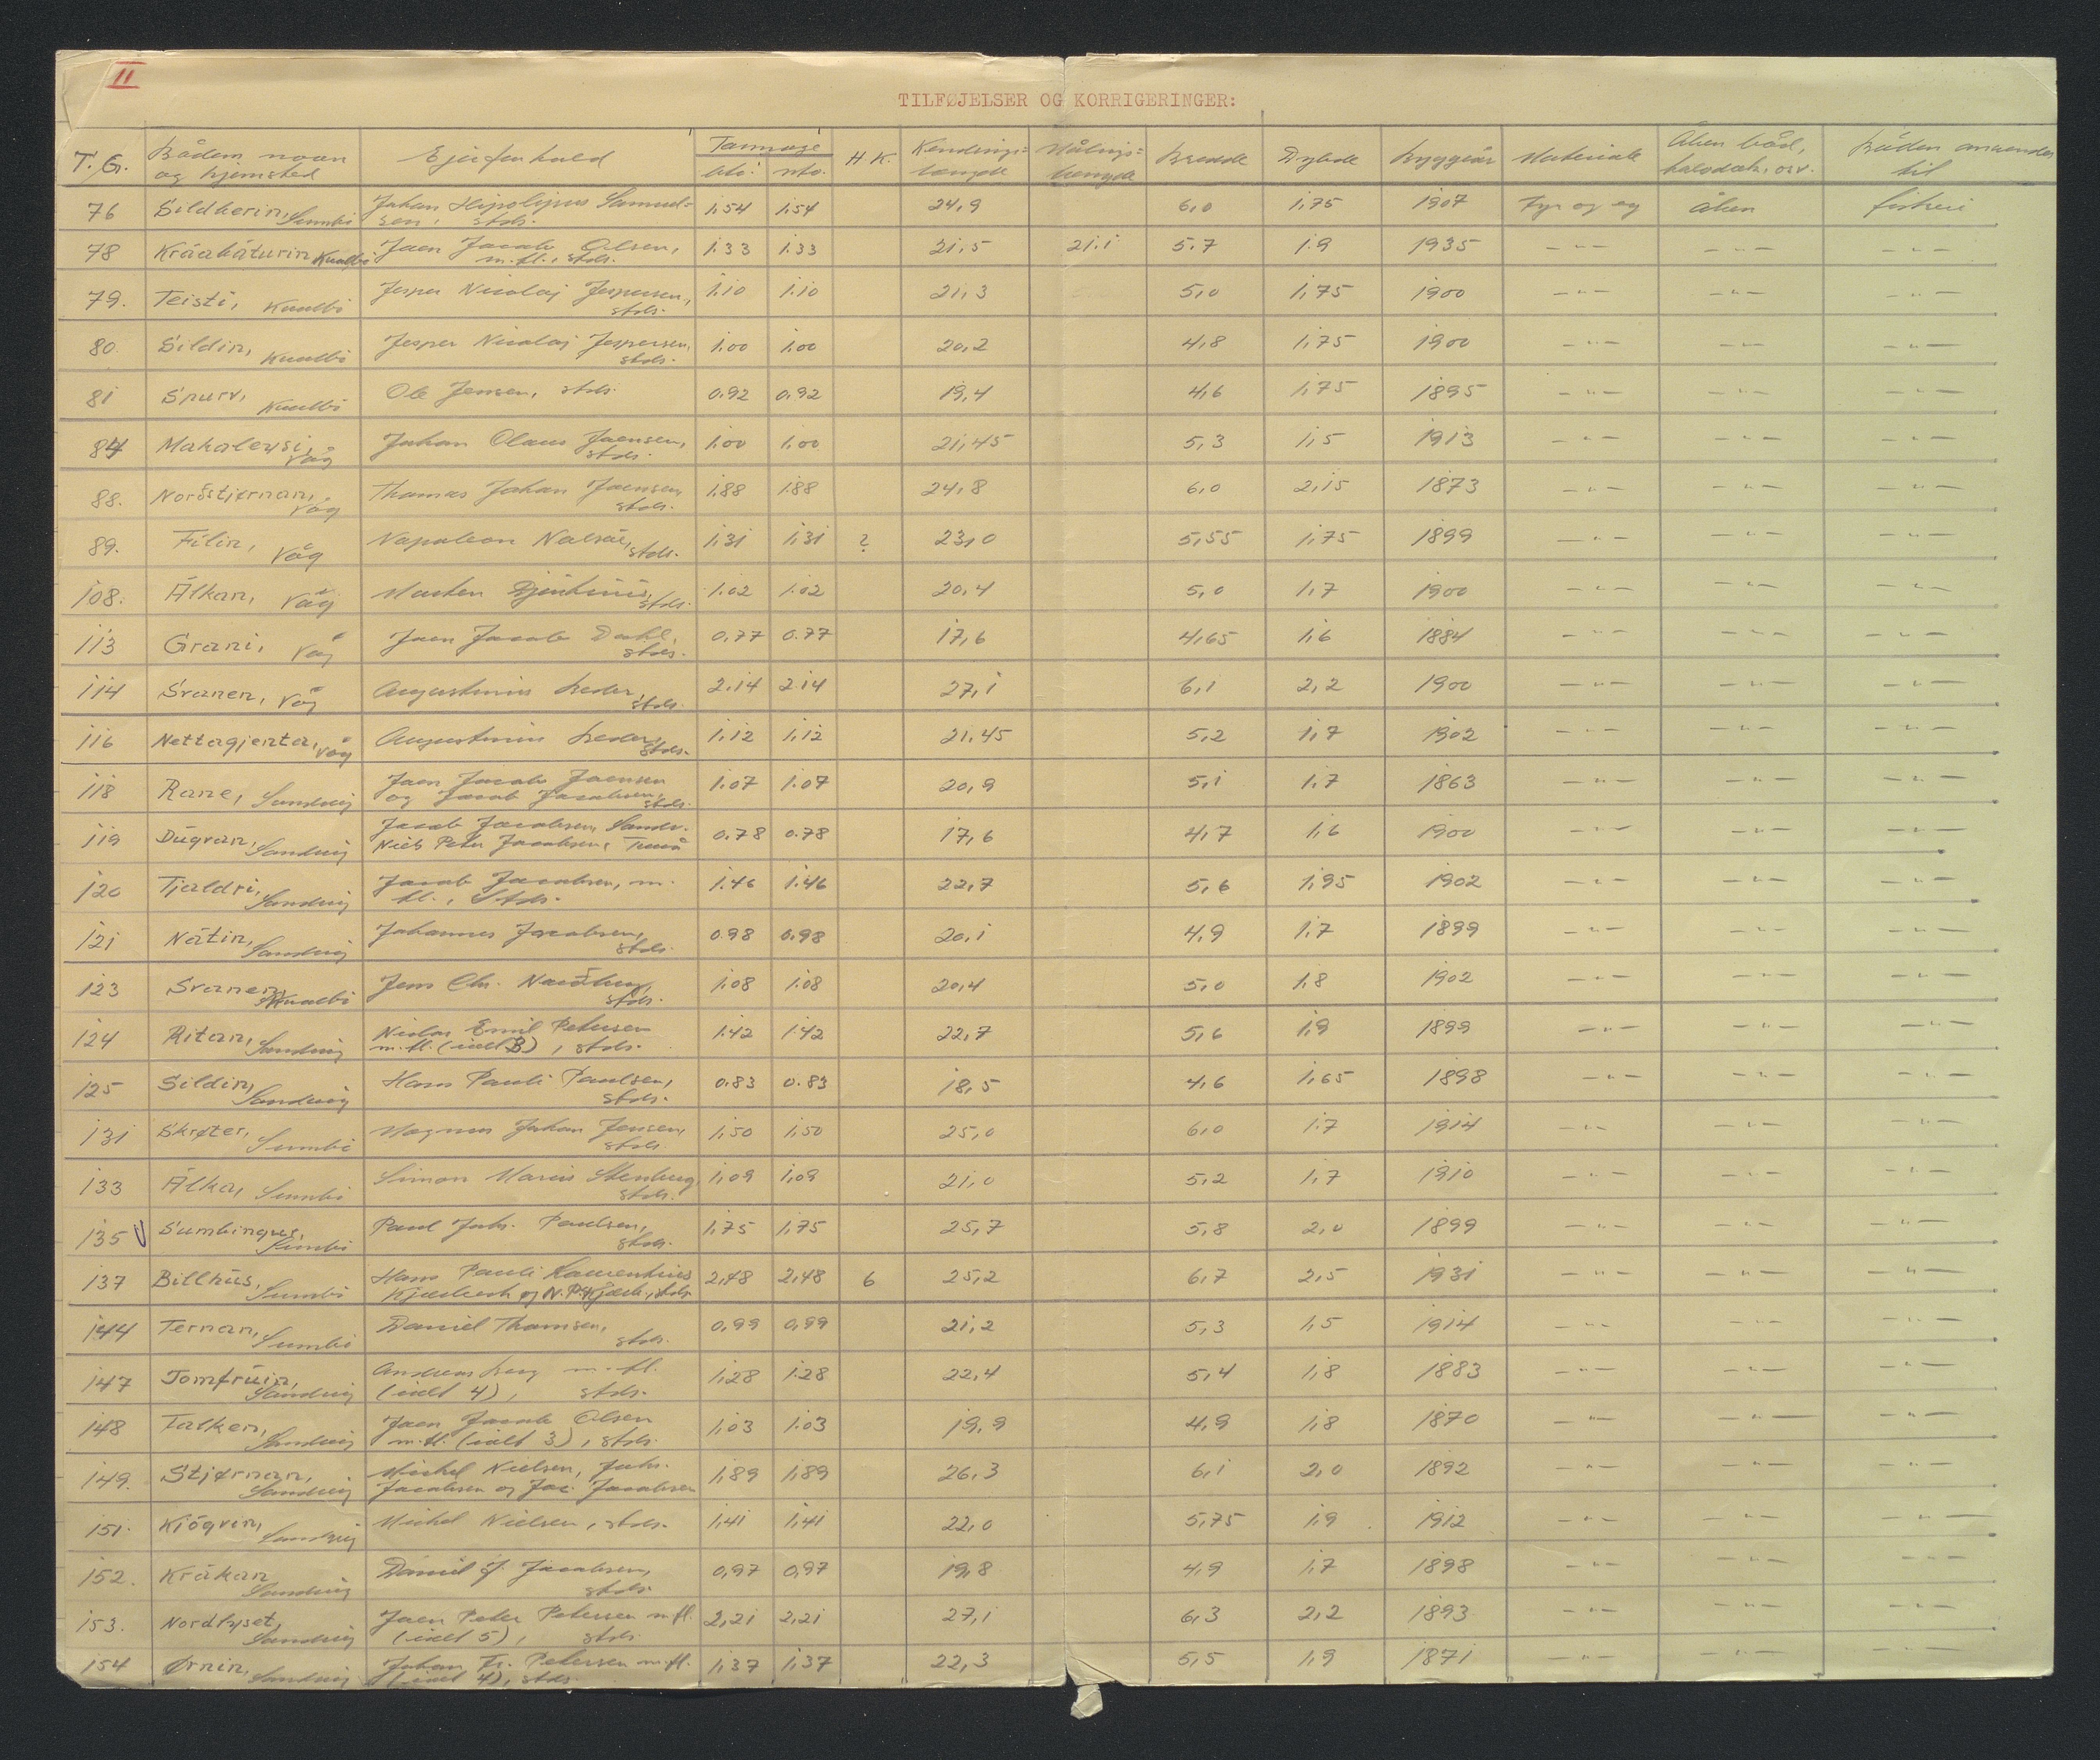 II
TILFØJELSER OG KORRIGERINGER:
T. G. Bådens navn og hjemsted Ejerforhold Tonnage bto. nto. H K. Kendings= længde Målings= længde Bredde Dybde Byggeår Materiale Åben båd, halvdæk, osv. Båden anvendes til
76 Sildberin, Sumbö Johan Hipolipus Samuel= sen, stds. 1,54 1,54 24,9 6,0 1,75 1907 Fyr og eg åben fiskeri
78 Kráabáturin Kvalbö Joen Jacob Olsen, m.fl., stds. 1.33 1.33 21,5 21.1 5.7 1.9 1935 -"- -"- -"-
79. Teisti, Kvalbö Jesper Nicolaj Jespersen, stds. 1.10 1.10 21,3 5,0 1,75 1900 -"- -"- -"-
80. Sildin, Kvalbö Jesper Nicolaj Jespersen, stds. 1,00 1,00 20,2 4,8 1,75 1900 -"- -"- -"-
81 Spurv, Kvalbö Ole Jensen, stds. 0.92 0,92 19,4 4,6 1,75 1895 -"- -"- -"-
84 Makaleysi, Våg Johan Olaus Joensen, stds. 1,00 1,00 21,45 5,3 1,5 1913 -"- -"- -"-
88. Norðstjørnan, Våg Thomas Johan Joensen, stds. 1.88 1.88 24,8 6,0 2,15 1873 -"- -"- -"-
89. Filin, Våg Napoleon Nolsöe, stds. 1,31 1,31 ? 23,0 5,55 1,75 1899 -"- -"- -"-
108. Álkan, Våg Morten Djónhúus, stds. 1.02 1.02 20,4 5,0 1,7 1900 -"- -"- -"-
113 Grani, Våg Joen Jacob Dahl, stds. 0.77 0.77 17,6 4,65 1,6 1884 -"- -"- -"-
114 Svanen, Våg Augustinus Leder, stds. 2.14 2.14 27,1 6,1 2,2 1900 -"- -"- -"-
116 Nettagjenta, Våg Augustinus Leder, stds. 1,12 1,12 21,45 5,2 1,7 1902 -"- -"- -"-
118 Rane, Sandvig Joen Jacob Joensen og Jacob Jacobsen, stds. 1.07 1.07 20,9 5,1 1,7 1863 -"- -"- -"-
119 Dúgvan, Sandvig Jacob Jacobsen, Sandv. Niels Peter Jacobsen, 0.78 0.78 17,6 4,7 1,6 1900 -"- -"- -"-
120 Tjaldri, Sandvig Jacob Jacobsen, m. fl., stds. 1.46 1.46 22,7 5,6 1,95 1902 -"- -"- -"-
121 Nátin, Sandvig Johannes Jacobsen, stds. 0.98 0.98 20,1 4,9 1,7 1899 -"- -"- -"-
123 Svanen, Kvalbö Jens Chr. Norðberg, stds. 1.08 1.08 20,4 5,0 1,8 1902 -"- -"- -"-
124 Ritan, Sandvig Niclas Emil Petersen m.fl. (ialt 3), stds. 1.42 1.42 22,7 5,6 1,9 1899 -"- -"- -"-
125 Sildin, Sandvig Hans Pauli Paulsen, stds. 0.83 0.83 18,5 4,6 1,65 1898 -"- -"- -"-
131 Skrøter, Sumbö Magnus Johan Jensen, stds. 1,50 1,50 25,0 6,0 1,7 1914 -"- -"- -"-
133 Álka, Sumbö Simon Marius Stenberg stds. 1,09 1,09 21,0 5,2 1,7 1910 -"- -"- -"-
135 Sumbingur, Sumbö Poul Johs. Poulsen, stds. 1,75 1,75 25,7 5,8 2,0 1899 -"- -"- -"-
137 Billhús, Sumbö Hans Pauli Laurentius Kjærbech og N.P. Kjærb., stds. 2,48 2,48 6 25,2 6,7 2,5 1931 -"- -"- -"-
144 Ternan, Sumbö Daniel Thomsen, stds. 0,99 0,99 21,2 5,3 1,5 1914 -"- -"- -"-
147 Jomfrúin, Sandvig Andreas Berg m.fl. (ialt 4), stds. 1,28 1.28 22,4 5,4 1,8 1883 -"- -"- -"-
148 Falken, Sandvig Joen Jacob Olsen m.fl. (ialt 3), stds. 1,03 1.03 19,9 4,9 1,8 1870 -"- -"- -"-
149. Stjørnan, Sandvig Michel Nielsen, Johs. Jacobsen og Jac. Jacobsen 1,89 1,89 26,3 6,1 2,0 1892 -"- -"- -"-
151. Kjógvin, Sandvig Michel Nielsen, stds. 1,41 1,41 22,0 5,75 1,9 1912 -"- -"- -"-
152. Krákan Sandvig Daniel J. Jacobsen, stds. 0,97 0,97 19,8 4,9 1,7 1898 -"- -"- -"-
153. Nordlyset, Sandvig Joen Peter Petersen m.fl. (ialt 5), stds. 2,21 2,21 27,1 6,3 2,2 1893 -"- -"- -"-
154 Ørnin, Sandvig Johan Fr. Petersen m.fl. (ialt 4), stds. 1,37 1,37 22,3 5,5 1,9 1871 -"- -"- -"-